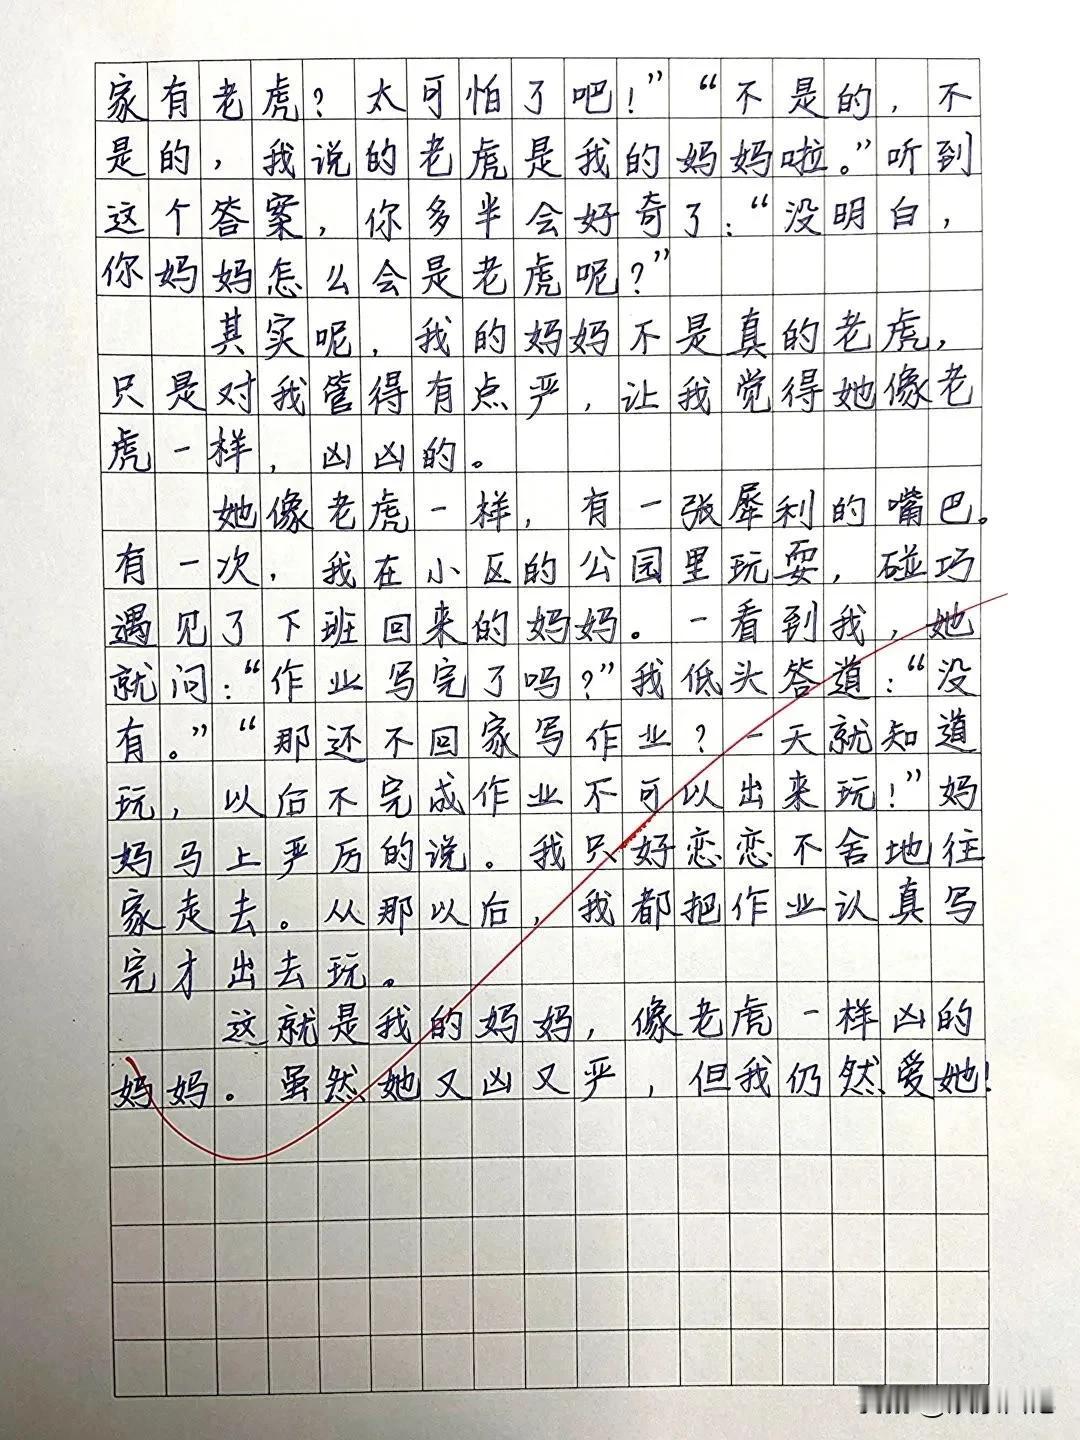 家有老虎？太可怕了吧！”“不是的，不
是的，我说的老虎是我的妈妈啦。”听到
这个答案，你多半会好奇了：“没明白，
你妈妈怎么会是老虎呢？”
其实呢，我的妈妈不是真的老虎，
只是对我管得有点严，让我觉得她像老
虎一样，凶凶的。
她像老虎一样，有一张犀利的嘴巴。
有一次，我在小区的公园里玩耍，碰巧
遇见了下班回来的妈妈。一看到我，她
就问：“作业写完了吗？”我低头答道：“没
有。”“那还不回家写作业？一天就知道
玩，以后不完成作业不可以出来玩！”妈
妈马上严厉的说。我只好恋恋不舍地往
家走去。从那以后，我都把作业认真写
完才出去玩。
这就是我的妈妈，像老虎一样凶的
妈妈。虽然她又凶又严，但我仍然爱她！